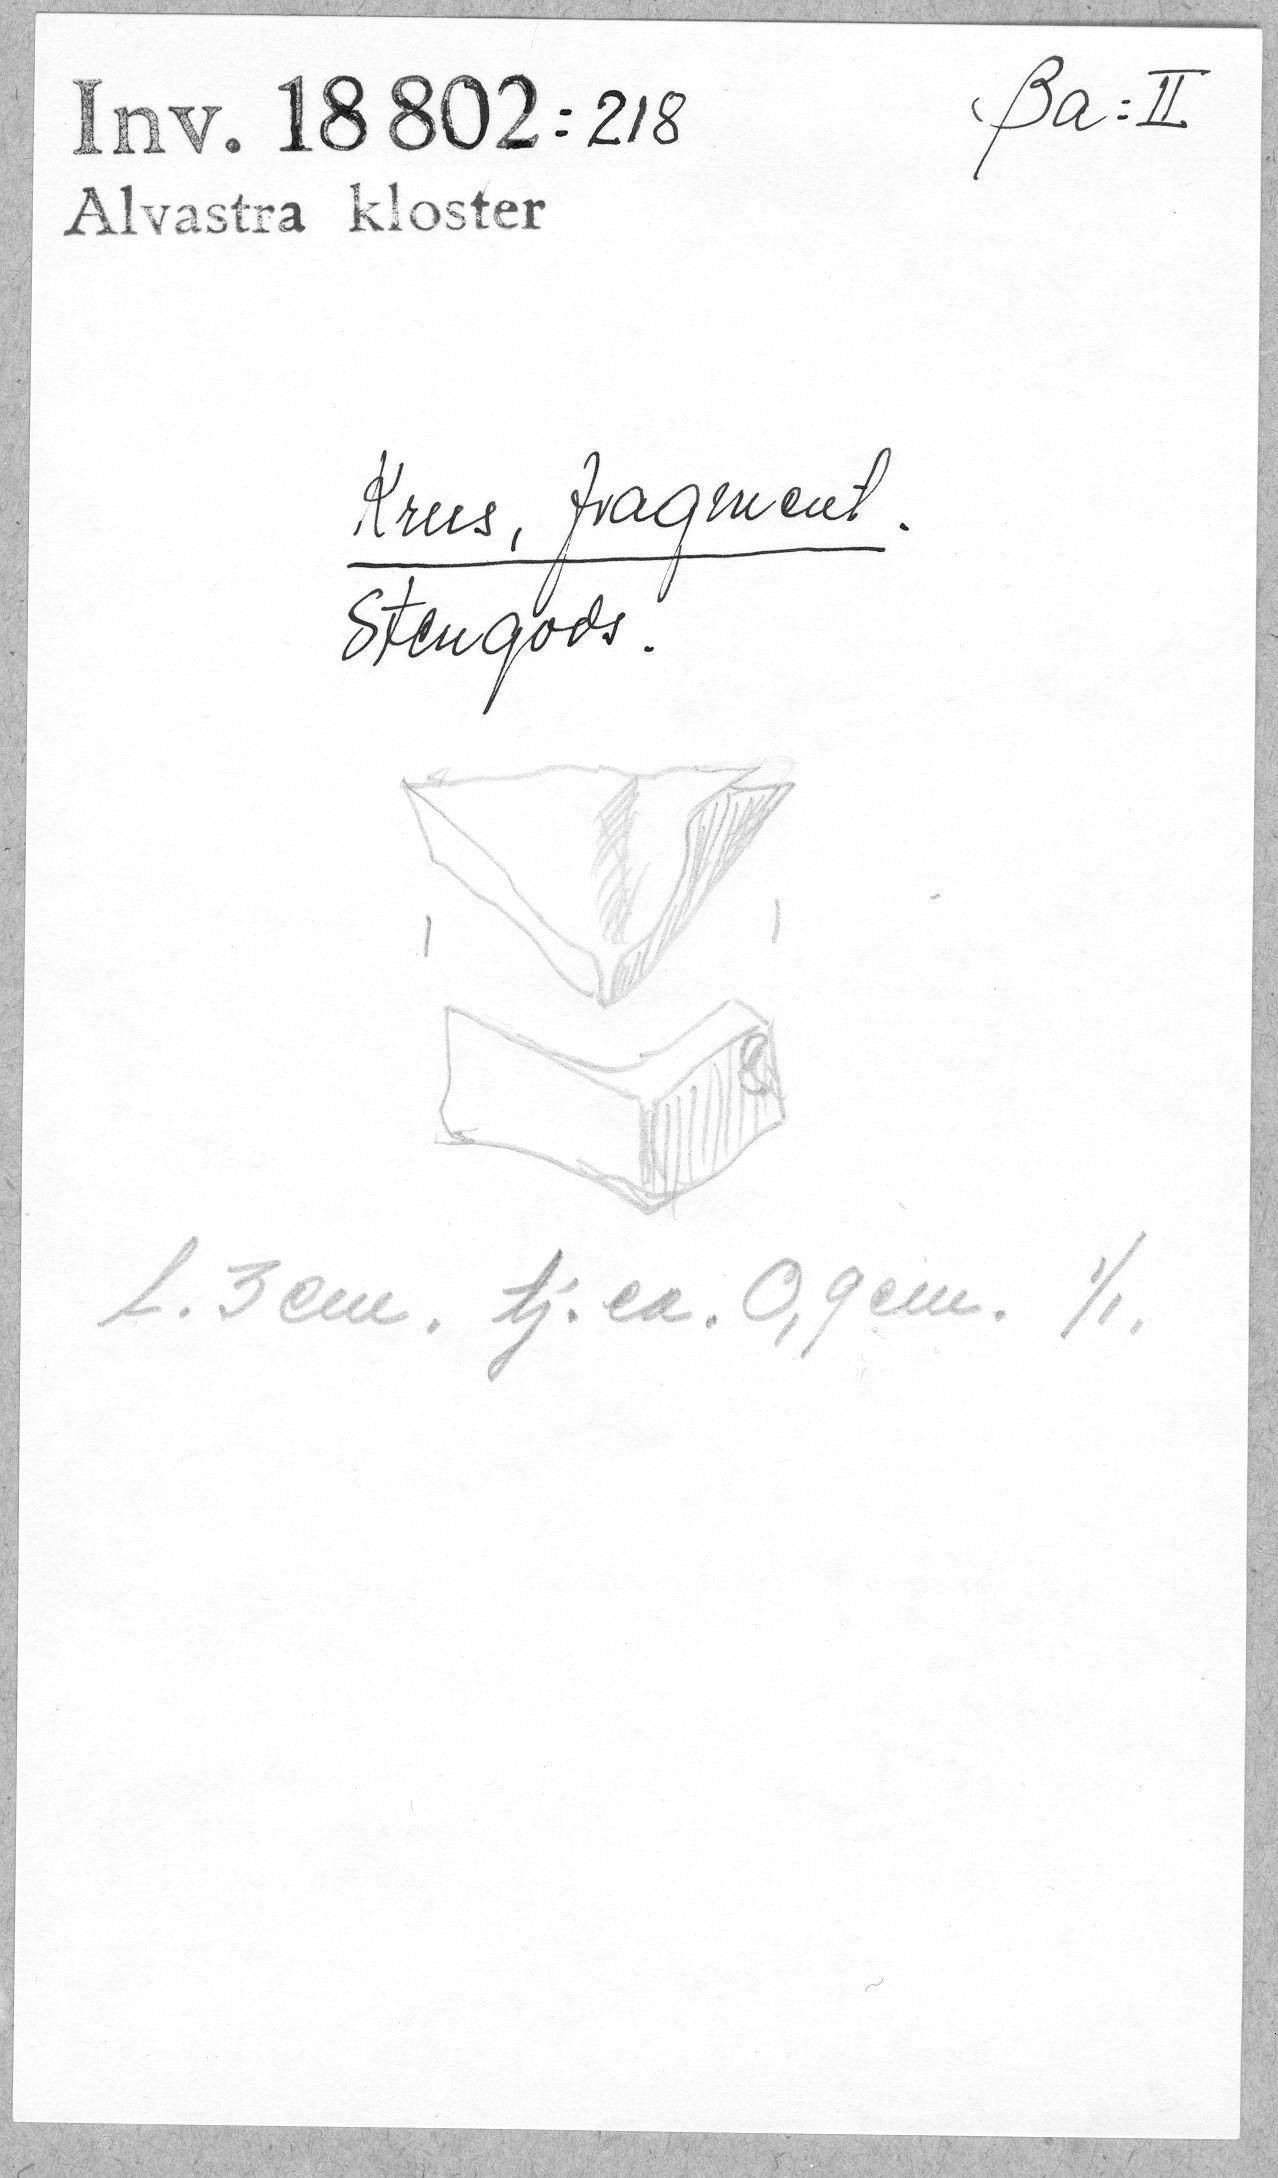 Inv. 18802:218
βa:II
Alvastra kloster
Krus, fragment.
Stengods.
L. 3 cm. tj. ca. 0,9 cm. 1/1.